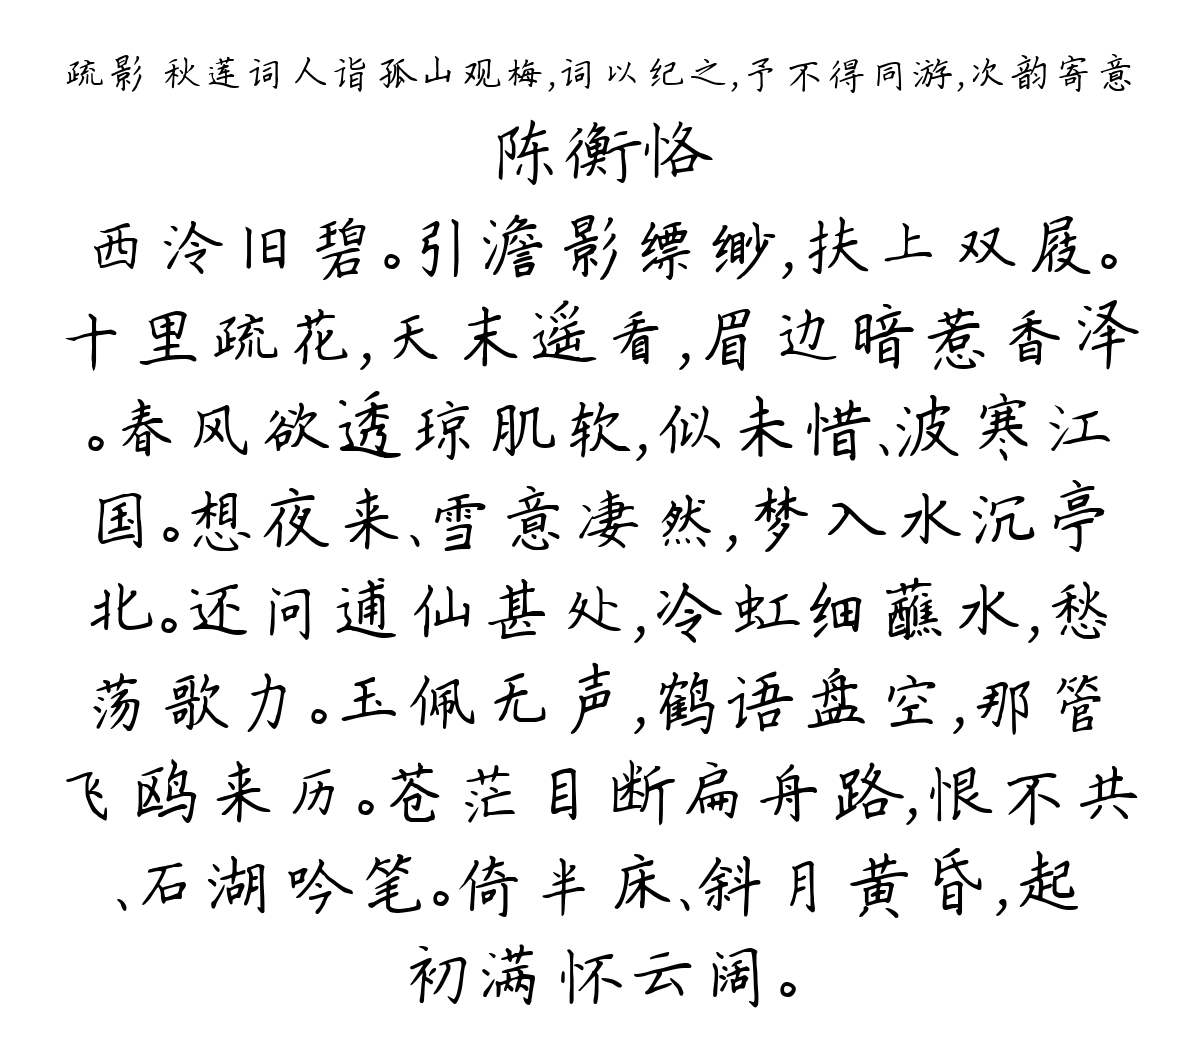 疏影 秋莲词人诣孤山观梅,词以纪之,予不得同游,次韵寄意
陈衡恪
西泠旧碧。引澹影缥缈,扶上双屐。
十里疏花,天末遥看,眉边暗惹香泽
。春风欲透琼肌软,似未惜、波寒江
国。想夜来、雪意凄然,梦入水沉亭
北。还问逋仙甚处,冷虹细蘸水,愁
荡歌力。玉佩无声,鹤语盘空,那管
飞鸥来历。苍茫目断扁舟路,恨不共
、石湖吟笔。倚半床、斜月黄昏,起
初满怀云阔。